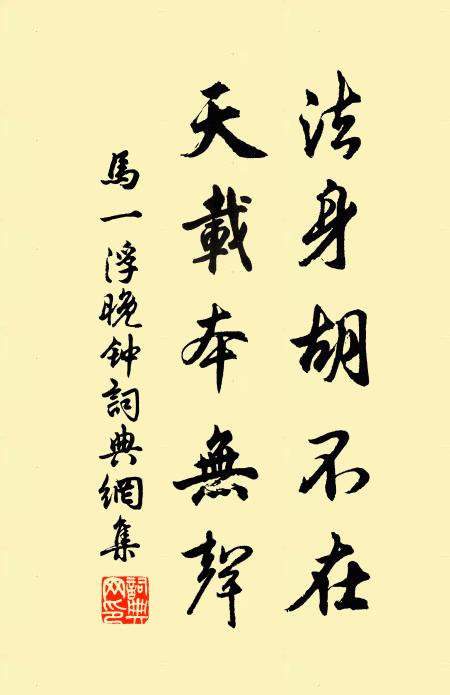 法身胡不在
天載本無聲
馬一浮晚钟詞典網集
詞典網印